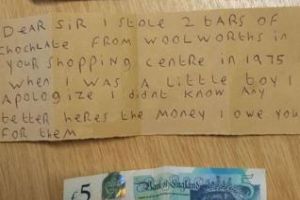 DEAR SIR I STOLE 2 BARS OF
CHOCHLATE FROM WOOLWORTHS in
your shopping centre in 1975
when I was a little boy I
Apologize I didnt know Any
better heres the money I owe you
For them
£5
Bank of England